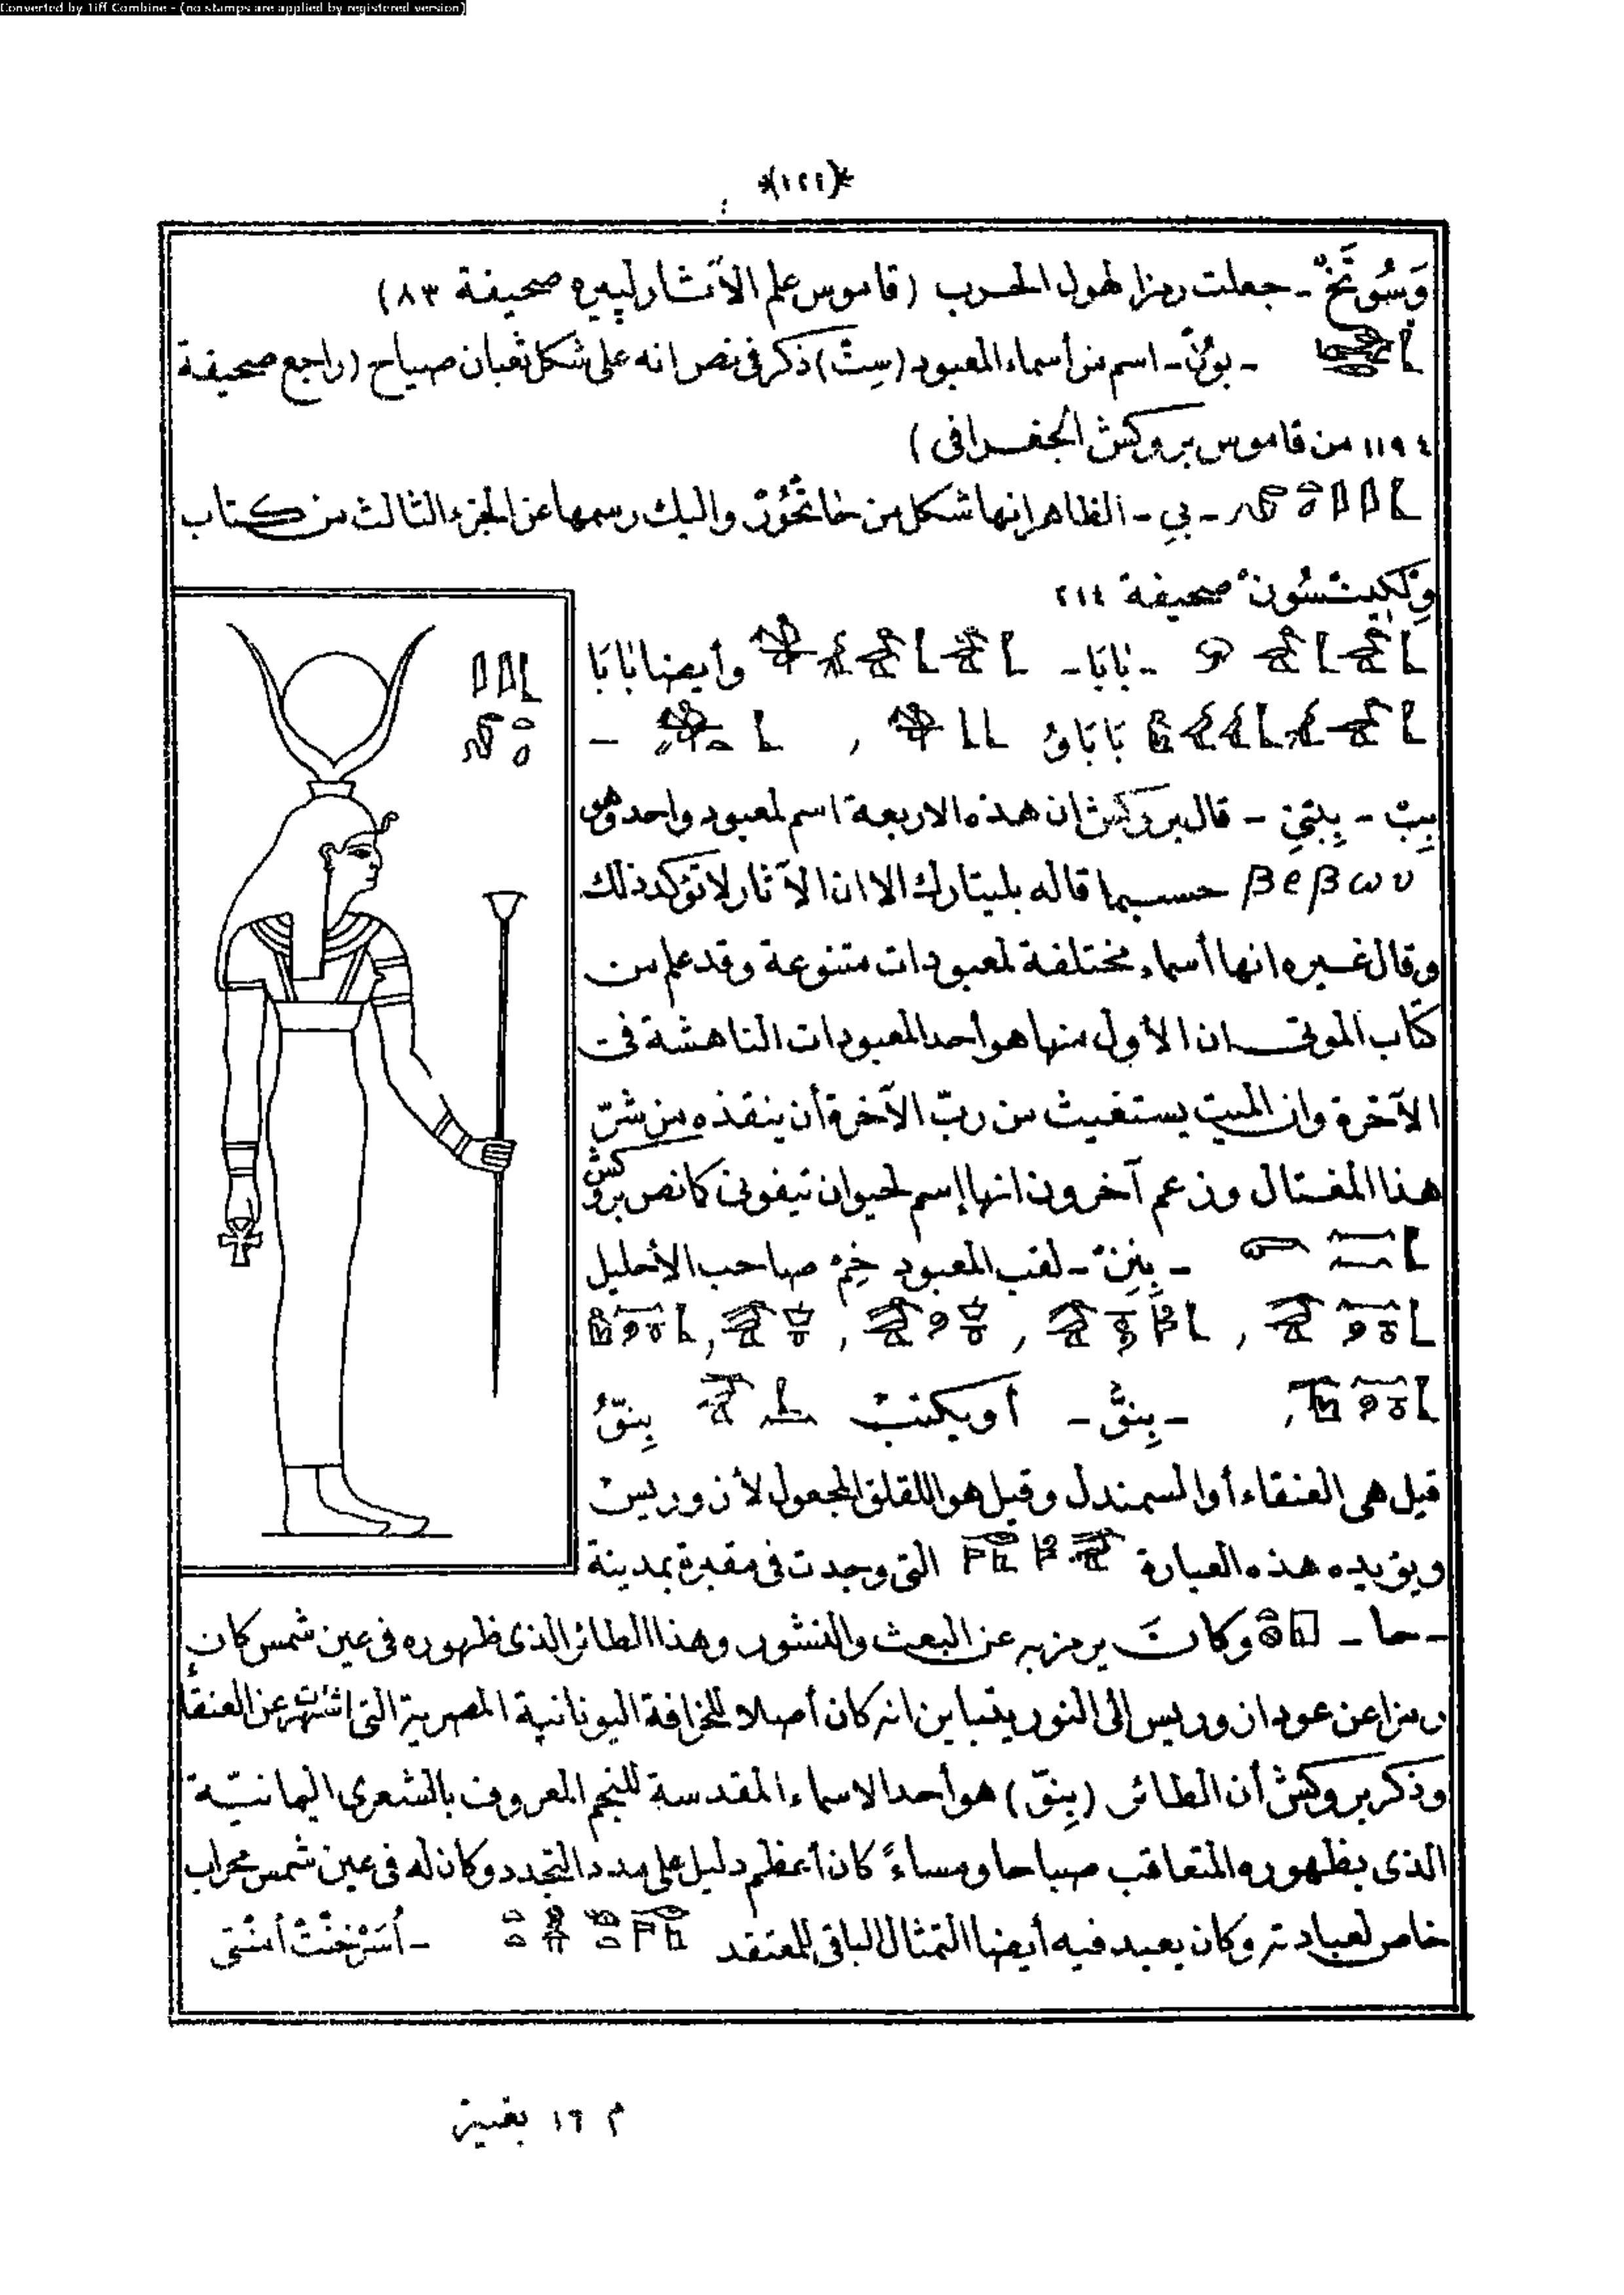 Converted by Tiff Combine - (no stamps are applied by registered version)
*(١٢١)*
وَسُوتَخْ - جعلت رمزا لهول الحرب (قاموس علم الآثار لپيره صحيفة ٨٣)
- بُونْ - اسم من أسماء المعبود (سِتْ) ذكر فى نص انه على شكل ثعبان صياح (راجع صحيفة
١١٩٤ من قاموس بروكش الجغرافى)
- بى - الظاهر انها شكل من خاتحور واليك رسمها عن الجزء الثالث من كتاب
ولكينسون صحيفة ٢١٤
- بَابَا - وأيضا بَابَا
بَابَاىُ , -
بِبْ - بِبْتِى - قال بروكش ان هذه الاربعة اسم لمعبود واحد وهو
βεβων حسبما قاله بليتارك الا ان الآثار لا تؤكد ذلك
وقال غيره انها أسماء مختلفة لمعبودات متنوعة وقد علم من
كتاب الموتى ان الأول منها هو أحد المعبودات الناهشة فى
الآخرة وان الميت يستغيث من ربّ الآخرة أن ينقذه من شرّ
هذا المغتال وزعم آخرون انها إسم لحيوان تيفونى كا نص بروكش
- بِنِنْ - لقب المعبود خِمْ صاحب الأحليل
, , , ,
, - بِنُّو - أو يكتب بِنّوُ
قيل هى العنقاء أو السمندل وقيل هو اللقلق المجعول لأزوريس
ويؤيده هذه العبارة التى وجدت فى مقبرة بمدينة
- حا - وكانت يرمز به عن البعث والنشور وهذا الطائر الذى ظهوره فى عين شمس كان
رمزا عن عود ازوريس إلى النور يتباين انه كان أصلا للخرافة اليونانية المصرية التى اشتهرت عن العنقاء
وذكر بروكش أن الطائر (بِنوّ) هو أحد الاسماء المقدسة للنجم المعروف بالشعرى اليمانيّة
الذى بظهوره المتعاقب صباحا ومساءً كان أعظم دليل على مدد التجدد وكان له فى عين شمس محراب
خاص لعبادته وكان يعبد فيه أيضا التمثال الباقى للمعتقد - أُسَرْخِنْتْ أمِنْتِى
م ١٦ بغية